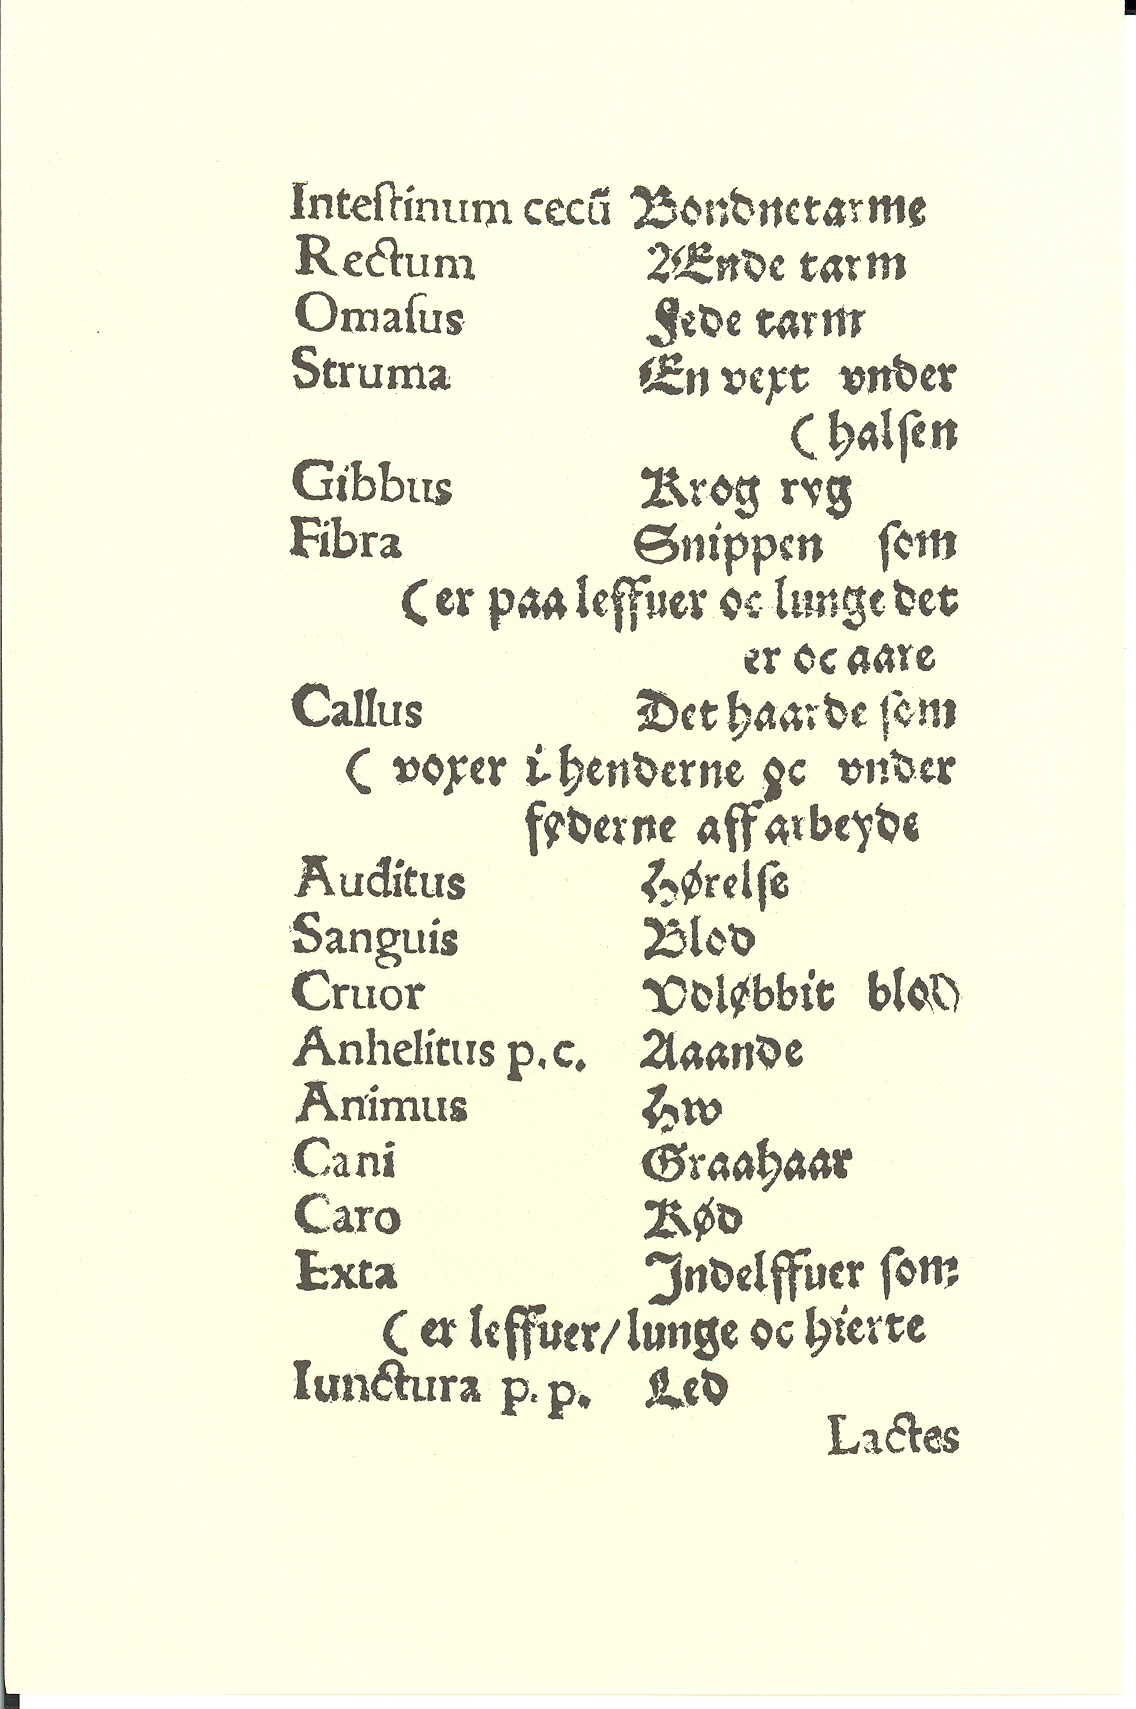 Inteſtinum cecū Bondnetarme
Rectum Ænde tarm
Omaſus Fede tarm
Struma En vext vnder
( halſen
Gibbus Krog ryg
Fibra Snippen ſom
( er paa leffuer oc lunge det
er oc aare
Callus Det haarde ſom
( voxer i henderne oc vnder
føderne aff arbeyde
Auditus Hørelſe
Sanguis Blod
Cruor Vdløbbit blod
Anhelitus p.c. Aaande
Animus Hw
Cani Graahaar
Caro Kød
Exta Indelffuer ſom
( er leffuer/ lunge oc hierte
Iunctura p.p. Led
Lactes